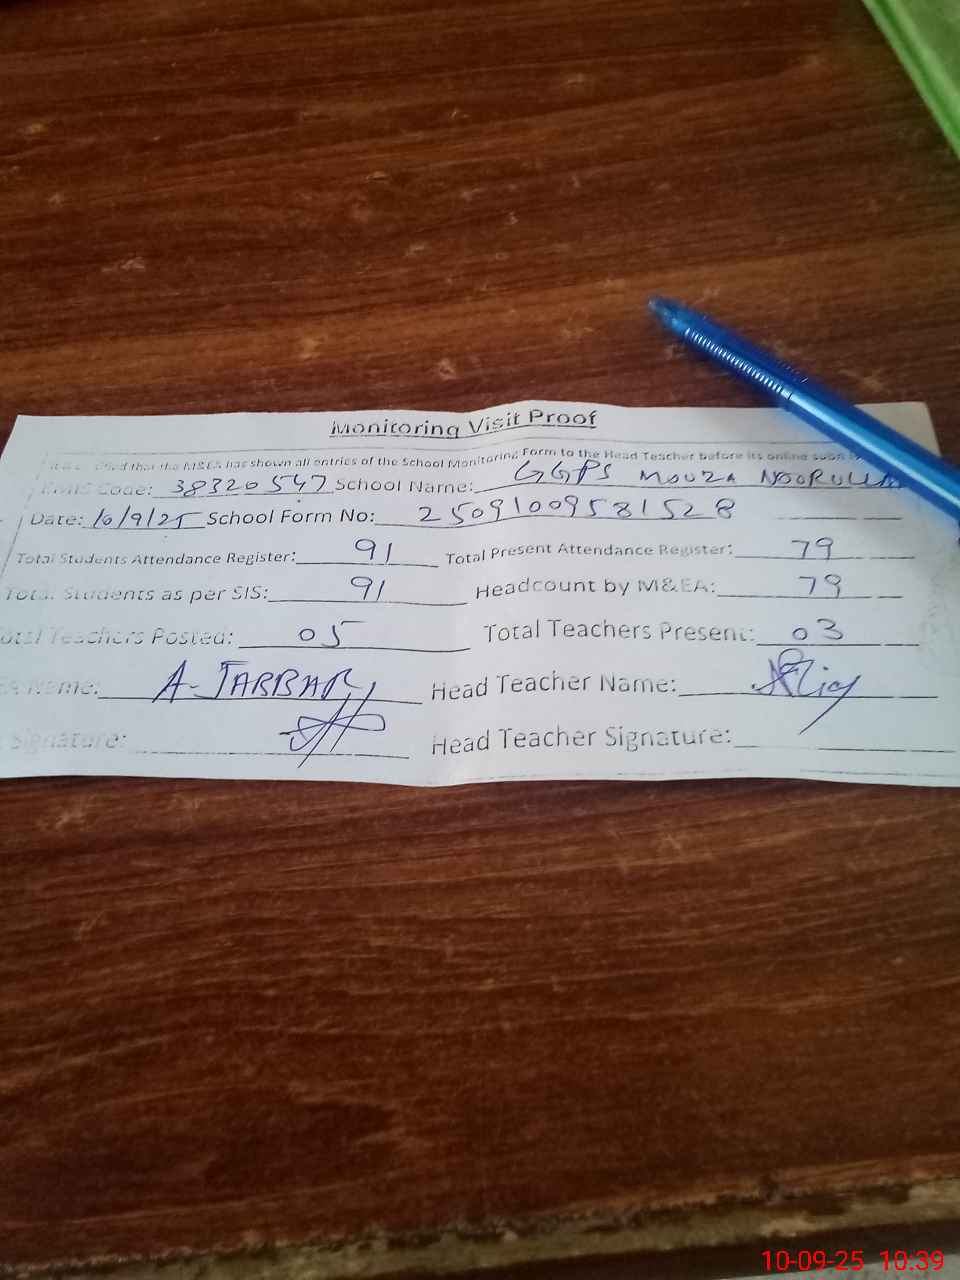 Monitoring Visit Proof
that the M&EA has shown all entries of the School Monitoring Form to the Head Teacher before its online
EMIS Code: 38320547 School Name: GGPS MOUZA
Date: 10/9/25 School Form No: 25091009581528
Total Students Attendance Register: 91 Total Present Attendance Register: 79
Total Students as per SIS: 91 Headcount by M&EA: 79
Total Teachers Posted: 05 Total Teachers Present: 03
Name: A-JABBAR Head Teacher Name:
Signature: Head Teacher Signature:
10-09-25 10:39